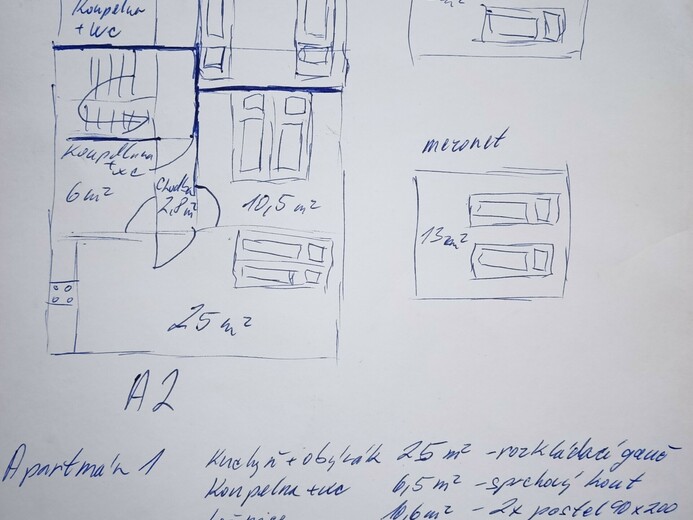 Koupelna
+ WC
m²
mezonet
Koupelna
+ WC
6 m²
chodba
2,8 m²
10,5 m²
13 m²
25 m²
A2
Apartmán 1 Kuchyň + obývák 25 m² - rozkládací gauč
Koupelna + WC 6,5 m² - sprchový kout
10,6 m² - 2x postel 90x200